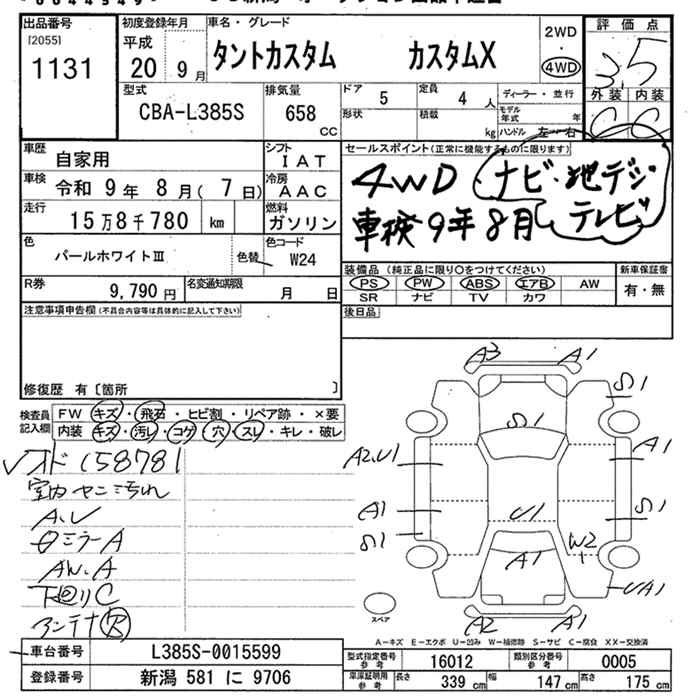 出品番号
[2055]
1131
初度登録年月
平成
20 9月
車名・グレード
タントカスタム カスタムX
2WD
・
4WD
評価点
3.5
外装 内装
C C
型式
CBA-L385S
排気量
658
CC
ドア
5
定員
4 人
ディーラー・並行
形状
積載
kg
モデル年式 年
ハンドル 左・右
車歴
自家用
シフト
IAT
セールスポイント(正常に機能するものに限ります)
4WD ナビ・地デジ・
車検9年8月 テレビ
車検
令和 9年 8月( 7日)
冷房
AAC
走行
15万8千780 km
燃料
ガソリン
色
パールホワイトⅢ
色替
色コード
W24
R券
9,790 円
名変通知期限
月 日
装備品 (純正品に限り〇をつけてください)
PS PW ABS エアB AW
SR ナビ TV カワ
新車保証書
有・無
後日品
注意事項申告欄(不具合内容等は具体的に記入して下さい)
修復歴 有〔箇所 〕
検査員記入欄
FW キズ・飛石・ヒビ割・リペア跡・×要
内装 キズ・汚レ・コゲ・穴・スレ・キレ・破レ
オド158781
室内ヤニ汚れ
A.U
日ミラーA
AW.A
下回りC
アンテナ欠
A3 A1
S1
S1
A2.U1 A1
A1 U1 S1
S1 A1 W2
UA1
A2 A1
スペア
A−キズ E−エクボ U−凹み W−補修跡 S−サビ C−腐食 XX−交換済
車台番号
L385S-0015599
登録番号
新潟 581 に 9706
型式指定番号 参考
16012
類別区分番号 参考
0005
車庫証明用 参考
長さ 339 cm
幅 147 cm
高さ 175 cm